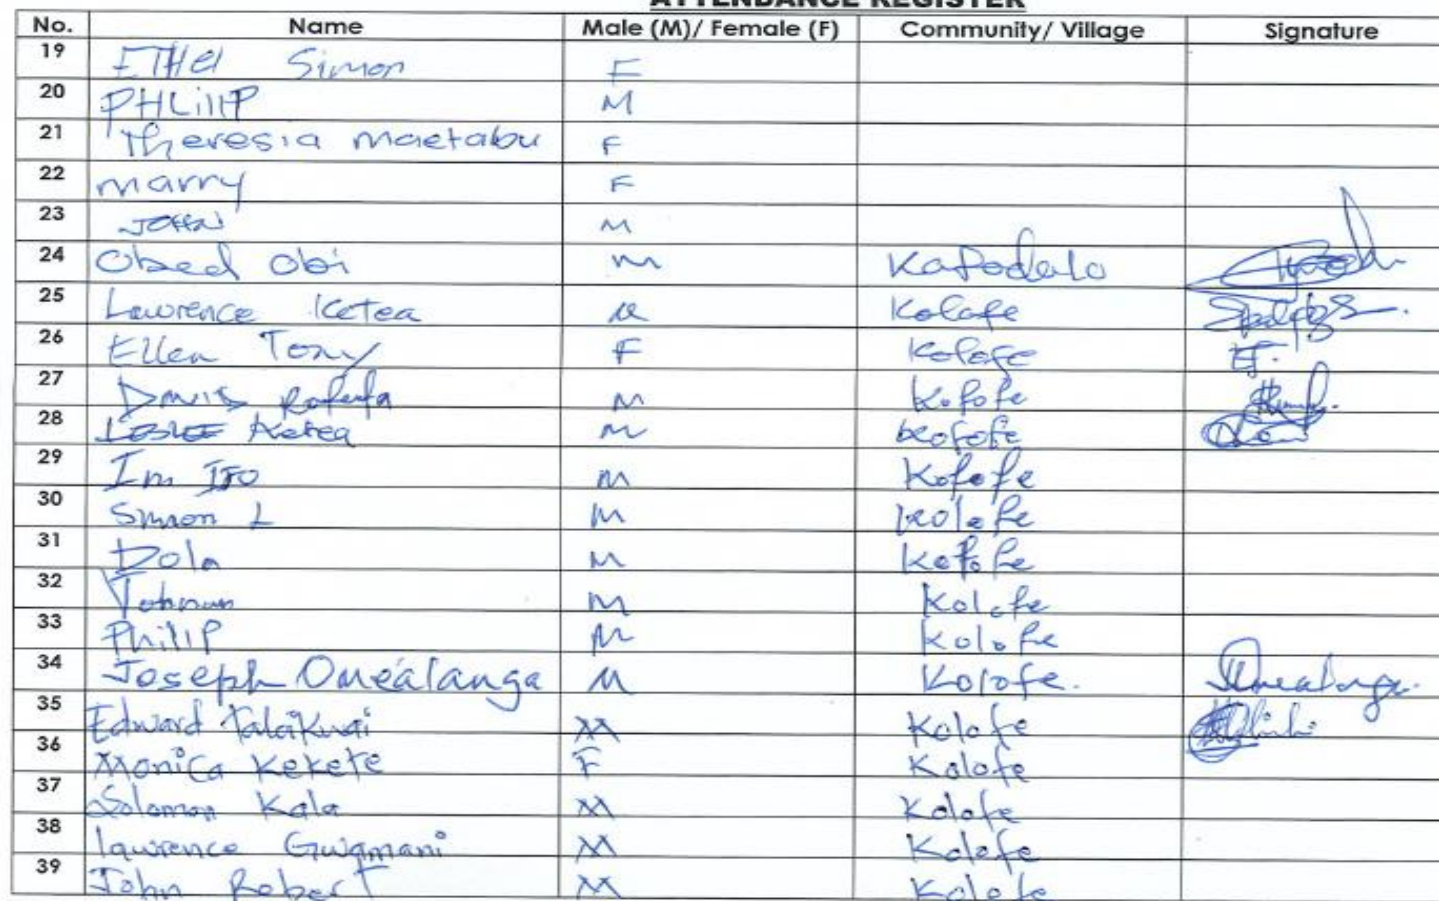 ATTENDANCE REGISTER
No. Name Male (M)/ Female (F) Community/ Village Signature
19 ETHEl Simon F
20 PHLillP M
21 Theresia maetabu F
22 marry F
23 JOHN M
24 Obed Obi m Kafodalo
25 Lawrence Ketea M Kolofe
26 Ellen Tony F Kolofe
27 DAVID M Kofofe
28 LESLEE Ketea M kofofe
29 Im ITO M Kofofe
30 Simon L M kolofe
31 Dola M Kofofe
32 M Kolofe
33 PhiliP M Kolofe
34 Joseph Omealanga M Kolofe.
35 Edward Talakwai M Kolofe
36 Monica Kekete F Kolofe
37 Solomon Kala M Kolofe
38 lawrence Gwamani M Kolofe
39 John Robert M Kolofe